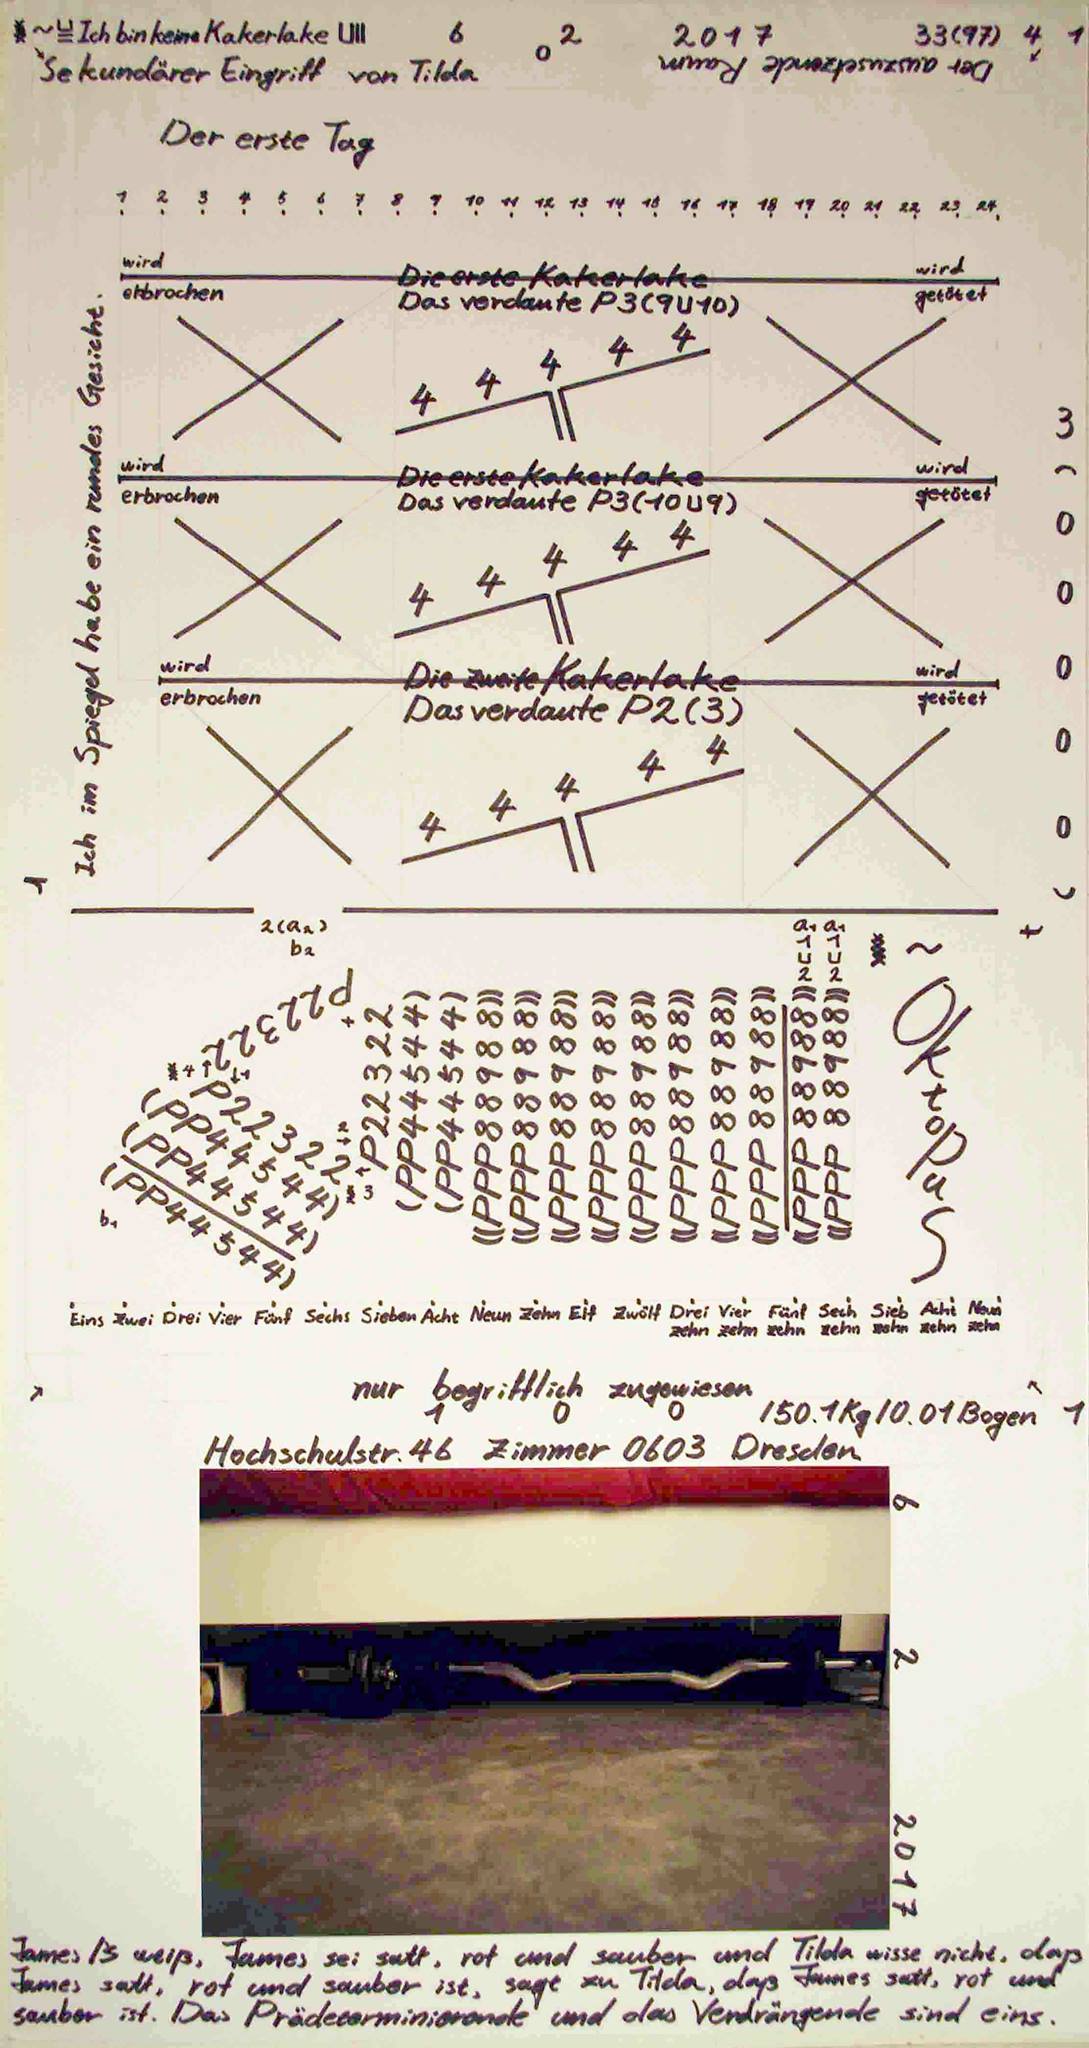 ~ Ich bin keine Kakerlake UII 6 2 2017 33(97) 4 1
0
Sekundärer Eingriff von Tilda Der auszusetzende Raum
Der erste Tag
1 2 3 4 5 6 7 8 9 10 11 12 13 14 15 16 17 18 19 20 21 22 23 24
wird Die erste Kakerlake wird
erbrochen Das verdaute P3(9U10) getötet
4 4 4 4 4
wird Die erste Kakerlake wird
erbrochen Das verdaute P3(10U9) getötet
4 4 4 4 4
wird Die zweite Kakerlake wird
erbrochen Das verdaute P2(3) getötet
4 4 4 4 4
Ich im Spiegel habe ein rundes Gesicht.
1
3(00000)
+
2(a2)
b2
a1 1U2
a1 1U2
~ Oktopus
P22322
P22322
(PP44544)
(PP44544)
(PP44544)
b1
P22322
(PP44544)
(PP44544)
((PPP88988))
((PPP88988))
((PPP88988))
((PPP88988))
((PPP88988))
((PPP88988))
((PPP88988))
((PPP88988))
((PPP88988))
((PPP88988))
Eins Zwei Drei Vier Fünf Sechs Sieben Acht Neun Zehn Elf Zwölf Drei Vier Fünf Sech Sieb Acht Neun
zehn zehn zehn zehn zehn zehn zehn
nur begrifflich zugewiesen
1 0 0 /150.1Kg/0.01Bogen 1
Hochschulstr. 46 Zimmer 0603 Dresden
6 2 2017
James /3 weiß, James sei satt, rot und sauber und Tilda wisse nicht, daß
James satt, rot und sauber ist, sagt zu Tilda, daß James satt, rot und
sauber ist. Das Prädeterminierende und das Verdrängende sind eins.